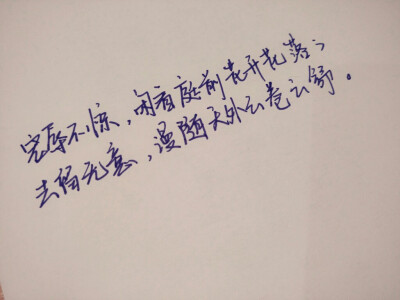 宠辱不惊，闲看庭前花开花落；
去留无意，漫随天外云卷云舒。